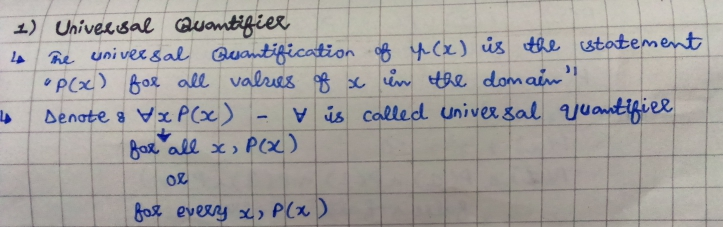 1) Universal Quantifier
↳ The universal Quantification of P(x) is the statement
"P(x) for all values of x in the domain"
↳ Denote : ∀x P(x) - ∀ is called universal quantifier
for all x, P(x)
or
for every x, P(x)